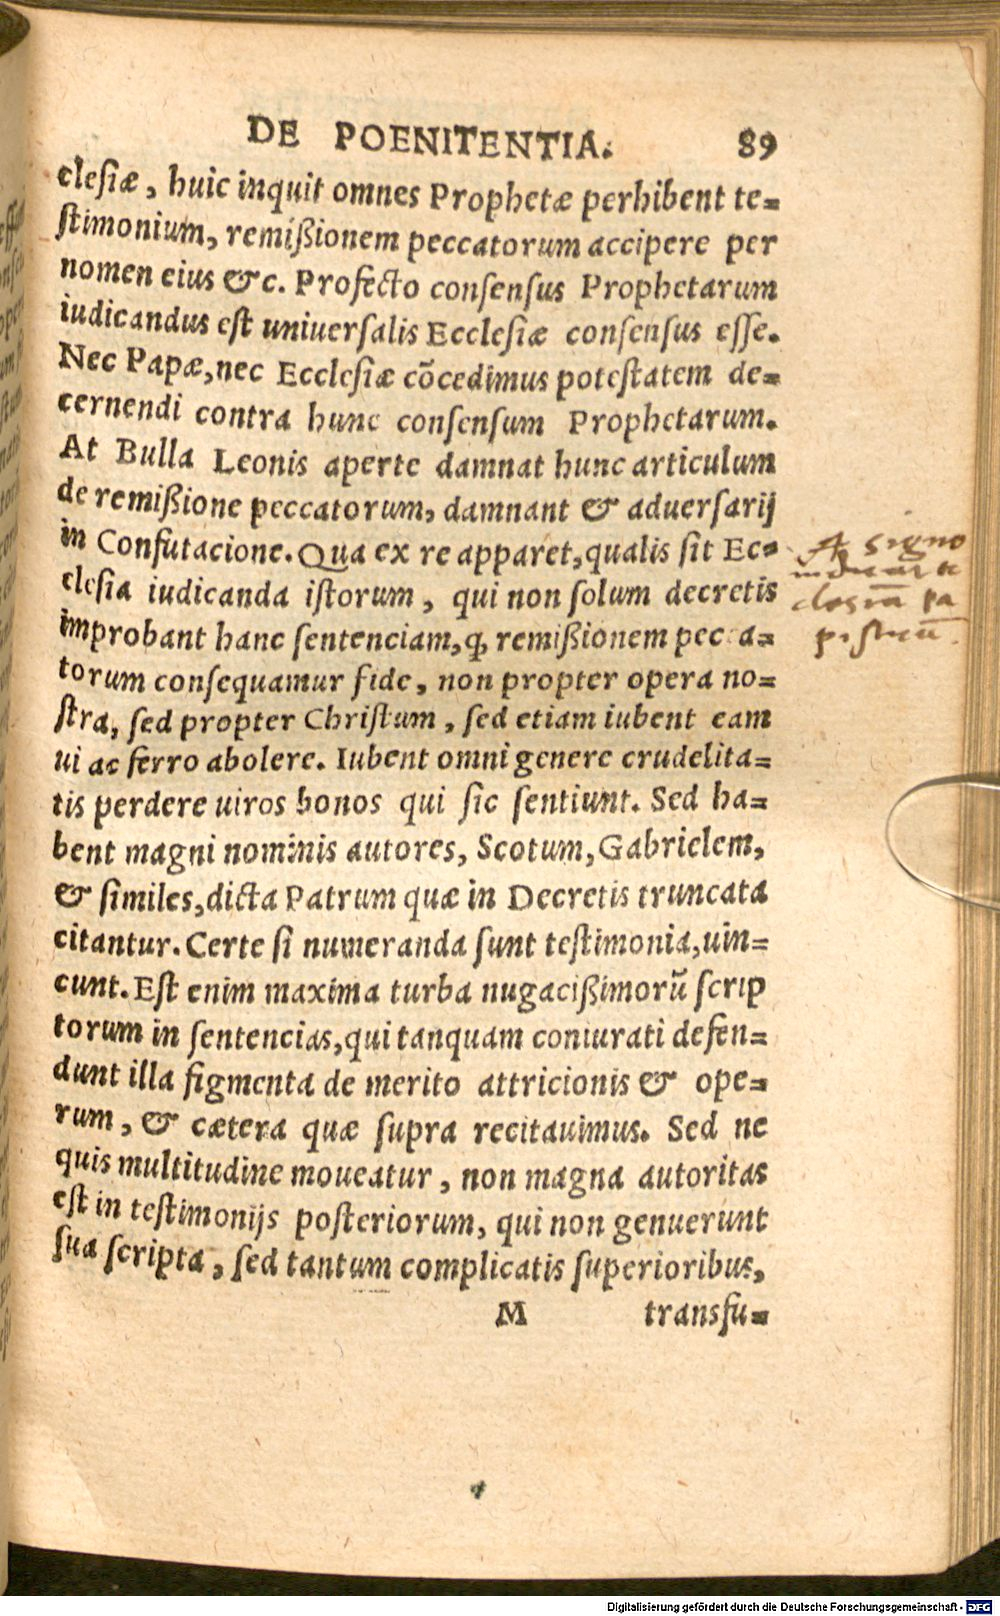 DE POENITENTIA. 89
clesiæ, huic inquit omnes Prophetæ perhibent te=
stimonium, remißionem peccatorum accipere per
nomen eius &c. Profecto consensus Prophetarum
iudicandus est uniuersalis Ecclesiæ consensus esse.
Nec Papæ, nec Ecclesiæ cõcedimus potestatem de=
cernendi contra hunc consensum Prophetarum.
At Bulla Leonis aperte damnat hunc articulum
de remißione peccatorum, damnant & aduersarij
in Confutacione. Qua ex re apparet, qualis sit Ec=
clesia iudicanda istorum, qui non solum decretis
improbant hanc sentenciam, ꝙ remißionem pecca=
torum consequamur fide, non propter opera no=
stra, sed propter Christum, sed etiam iubent eam
ui ac ferro abolere. Iubent omni genere crudelita=
tis perdere uiros bonos qui sic sentiunt. Sed ha=
bent magni nominis autores, Scotum, Gabrielem,
& similes, dicta Patrum quæ in Decretis truncata
citantur. Certe si numeranda sunt testimonia, uin=
cunt. Est enim maxima turba nugacißimorũ scrip
torum in sentencias, qui tanquam coniurati defen=
dunt illa figmenta de merito attricionis & ope=
rum, & cætera quæ supra recitauimus. Sed ne
quis multitudine moueatur, non magna autoritas
est in testimonijs posteriorum, qui non genuerunt
sua scripta, sed tantum complicatis superioribus,
M transfu=
A signo
pa
Digitalisierung gefördert durch die Deutsche Forschungsgemeinschaft - DFG